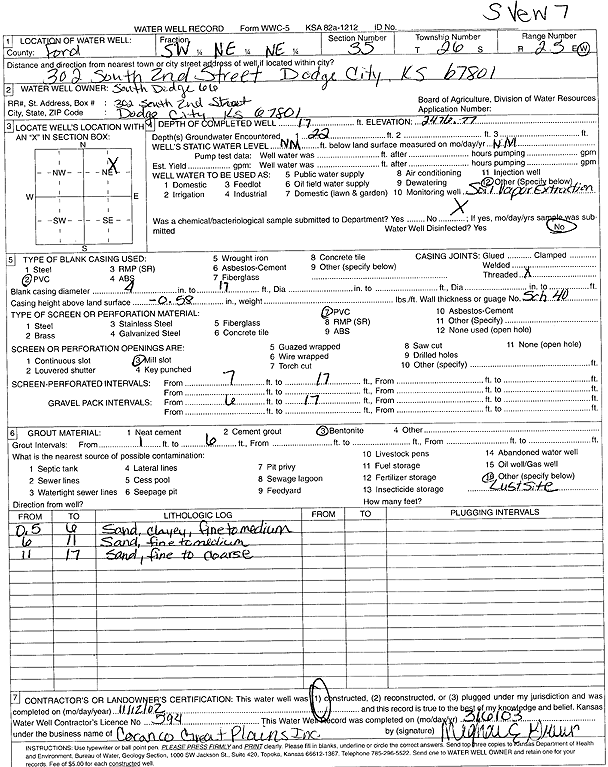 SVEW 7
WATER WELL RECORD Form WWC-5 KSA 82a-1212 ID No.
1 LOCATION OF WATER WELL: Fraction Section Number Township Number Range Number
County: Ford SW ¼ NE ¼ NE ¼ 35 T 26 S R 25 E W
Distance and direction from nearest town or city street address of well if located within city?
302 South 2nd Street Dodge City, KS 67801
2 WATER WELL OWNER: South Dodge 66
RR#, St. Address, Box # : 302 South 2nd Street Board of Agriculture, Division of Water Resources
City, State, ZIP Code : Dodge City Ks 67801 Application Number:
3 LOCATE WELL'S LOCATION WITH AN "X" IN SECTION BOX:
N
NW NE X
W E
SW SE
S
4 DEPTH OF COMPLETED WELL 17 ft. ELEVATION: 2476.77
Depth(s) Groundwater Encountered 1 22 ft. 2 ft. 3 ft.
WELL'S STATIC WATER LEVEL NM ft. below land surface measured on mo/day/yr NM
Pump test data: Well water was ft. after hours pumping gpm
Est. Yield gpm: Well water was ft. after hours pumping gpm
WELL WATER TO BE USED AS: 5 Public water supply 8 Air conditioning 11 Injection well
1 Domestic 3 Feedlot 6 Oil field water supply 9 Dewatering 12 Other (Specify below)
2 Irrigation 4 Industrial 7 Domestic (lawn & garden) 10 Monitoring well Soil Vapor Extraction
Was a chemical/bacteriological sample submitted to Department? Yes No X; If yes, mo/day/yrs sample was submitted
Water Well Disinfected? Yes No
5 TYPE OF BLANK CASING USED: 5 Wrought iron 8 Concrete tile CASING JOINTS: Glued Clamped
1 Steel 3 RMP (SR) 6 Asbestos-Cement 9 Other (specify below) Welded
2 PVC 4 ABS 7 Fiberglass Threaded X
Blank casing diameter 4 in. to 17 ft., Dia in. to ft., Dia in. to ft.
Casing height above land surface -0.58 in., weight lbs./ft. Wall thickness or guage No. Sch 40
TYPE OF SCREEN OR PERFORATION MATERIAL: 7 PVC 10 Asbestos-Cement
1 Steel 3 Stainless Steel 5 Fiberglass 8 RMP (SR) 11 Other (Specify)
2 Brass 4 Galvanized Steel 6 Concrete tile 9 ABS 12 None used (open hole)
SCREEN OR PERFORATION OPENINGS ARE: 5 Guazed wrapped 8 Saw cut 11 None (open hole)
1 Continuous slot 3 Mill slot 6 Wire wrapped 9 Drilled holes
2 Louvered shutter 4 Key punched 7 Torch cut 10 Other (specify) ft.
SCREEN-PERFORATED INTERVALS: From 7 ft. to 17 ft., From ft. to ft.
From ft. to ft., From ft. to ft.
GRAVEL PACK INTERVALS: From 6 ft. to 17 ft., From ft. to ft.
From ft. to ft., From ft. to ft.
6 GROUT MATERIAL: 1 Neat cement 2 Cement grout 3 Bentonite 4 Other
Grout Intervals: From 1 ft. to 6 ft., From ft. to ft., From ft. to ft.
What is the nearest source of possible contamination: 10 Livestock pens 14 Abandoned water well
1 Septic tank 4 Lateral lines 7 Pit privy 11 Fuel storage 15 Oil well/Gas well
2 Sewer lines 5 Cess pool 8 Sewage lagoon 12 Fertilizer storage 16 Other (specify below)
3 Watertight sewer lines 6 Seepage pit 9 Feedyard 13 Insecticide storage Lust Site
Direction from well? How many feet?
FROM TO LITHOLOGIC LOG FROM TO PLUGGING INTERVALS
0.5 6 Sand, clayey, fine to medium
6 11 Sand, fine to medium
11 17 Sand, fine to coarse
7 CONTRACTOR'S OR LANDOWNER'S CERTIFICATION: This water well was (1) constructed, (2) reconstructed, or (3) plugged under my jurisdiction and was
completed on (mo/day/year) 11/12/02 and this record is true to the best of my knowledge and belief. Kansas
Water Well Contractor's Licence No 594 This Water Well Record was completed on (mo/day/yr) 3/6/03
under the business name of Coranco Great Plains Inc by (signature)
INSTRUCTIONS: Use typewriter or ball point pen. PLEASE PRESS FIRMLY and PRINT clearly. Please fill in blanks, underline or circle the correct answers. Send top three copies to Kansas Department of Health
and Environment, Bureau of Water, Geology Section, 1000 SW Jackson St., Suite 420, Topeka, Kansas 66612-1367. Telephone 785-296-5522. Send one to WATER WELL OWNER and retain one for your
records. Fee of $5.00 for each constructed well.